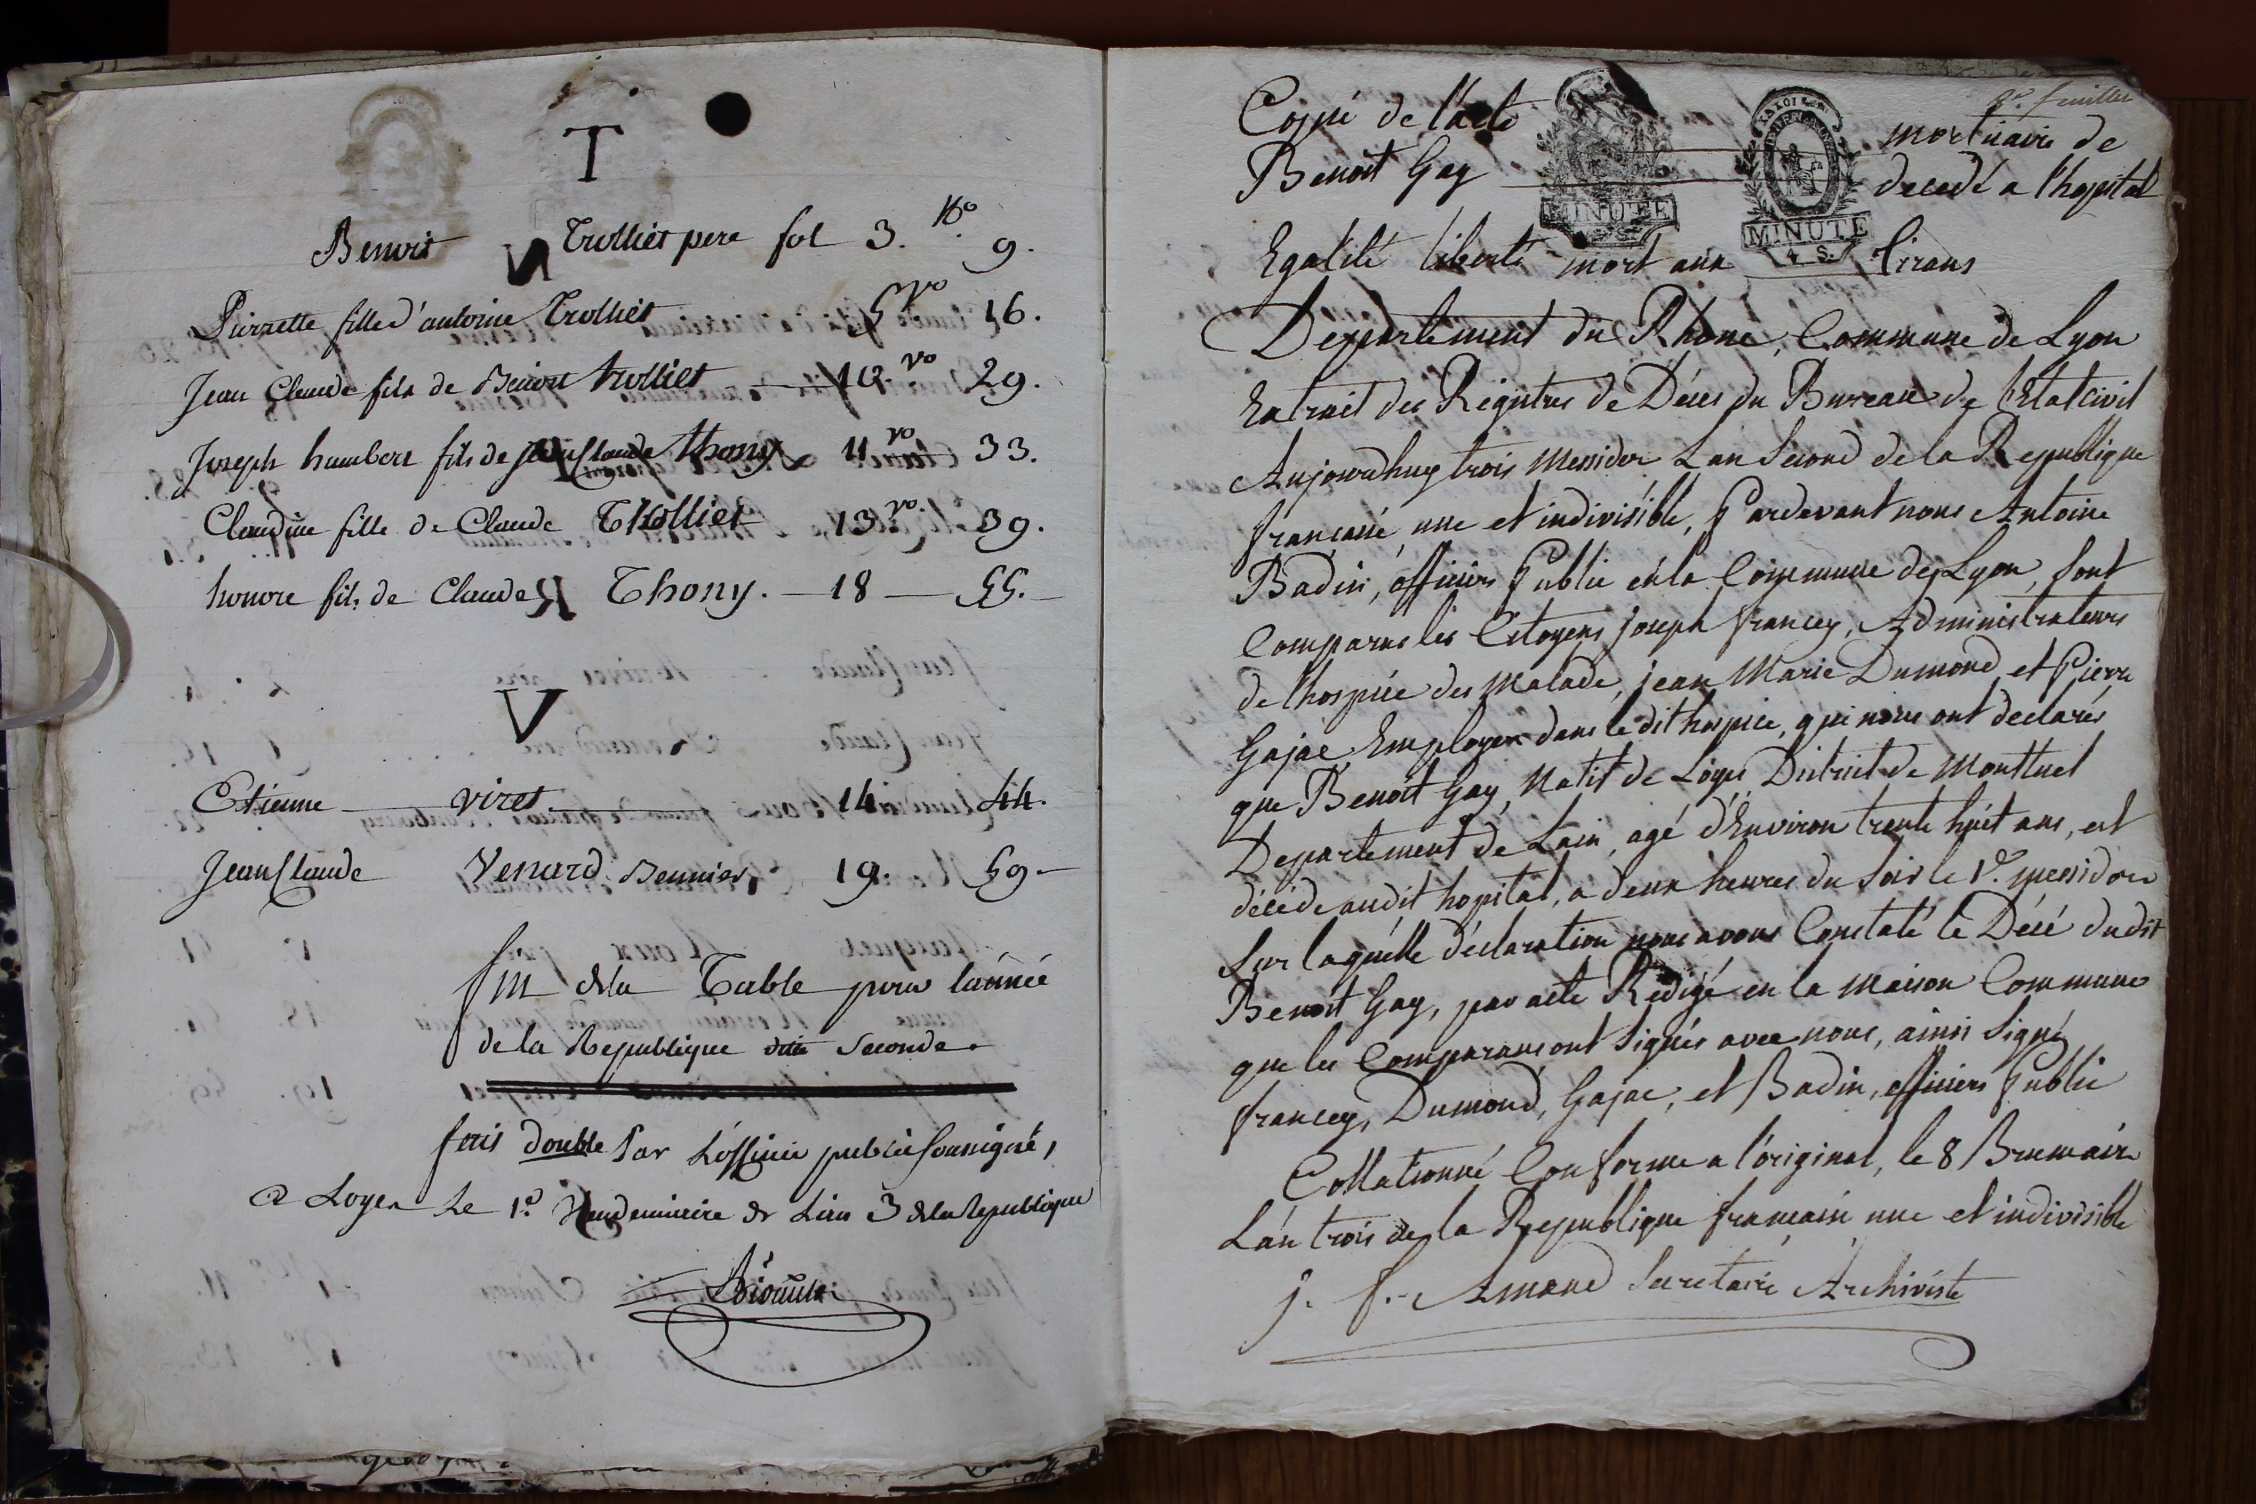 T
Benoit Trolliet pere fol 3. No 9.
Pierrette fille d'antoine Trolliet 5 vo 16.
Jean Claude fils de Benoit trolliet 10. vo 29.
Joseph humbert fils de Jean Claude thony 11 vo 33.
Claudine fille de Claude Tholliet 13 vo. 39.
honore fils de Claude Thony. 18 55.
V
Etienne viret 14 44.
Jean Claude Venard 19. 59.
fin de la Table pour lánnée
de la Republique seconde.
fais double Par Lófficier public soussigné,
a Loyes Le 1er Vendemiaire de Lan 3 de la Republique
2e. feuillet
Copie de l'acte mortuaire de
Benoit Gay decedé a l'hopital
MINUTE
MINUTE
4 S.
Egalité liberté mort aux tirans
Departement du Rhone, Commune de Lyon
Extrait des Régistres de Déces du Bureau de l'Etat civil
Aujourdhuy trois Messidor Lan Second de la Republique
francaise, une et indivisible, Pardevant nous Antoine
Badin, officier Public en la Commune de Lyon, sont
Comparus les Citoyens joseph francey, Administrateurs
de l'hospice des Malade, jean Marie Dumond et Pierre
Gajac Employer dans le dit hospice, qui nous ont declarés
que Benoit Gay, Natif de Loyes District de Montluel
Departement de Lain, agé d'Environ trente huit ans, est
décédé audit hopital, a deux heures du Soir le 1er. messidor
Sur laquelle déclaration nous avons Constaté le Décé dudit
Benoit Gay, par acte Rédigé en la Maison Commune
que les Comparans ont Signés avec nous, ainsi Signé
francey, Dumond, Gajac, et Badin, officier Public
Collationné Conforme a l'original, le 8 Brumaire
L'an trois de la Republique francaise une et indivisible
j. f. Amand Secretaire Archiviste